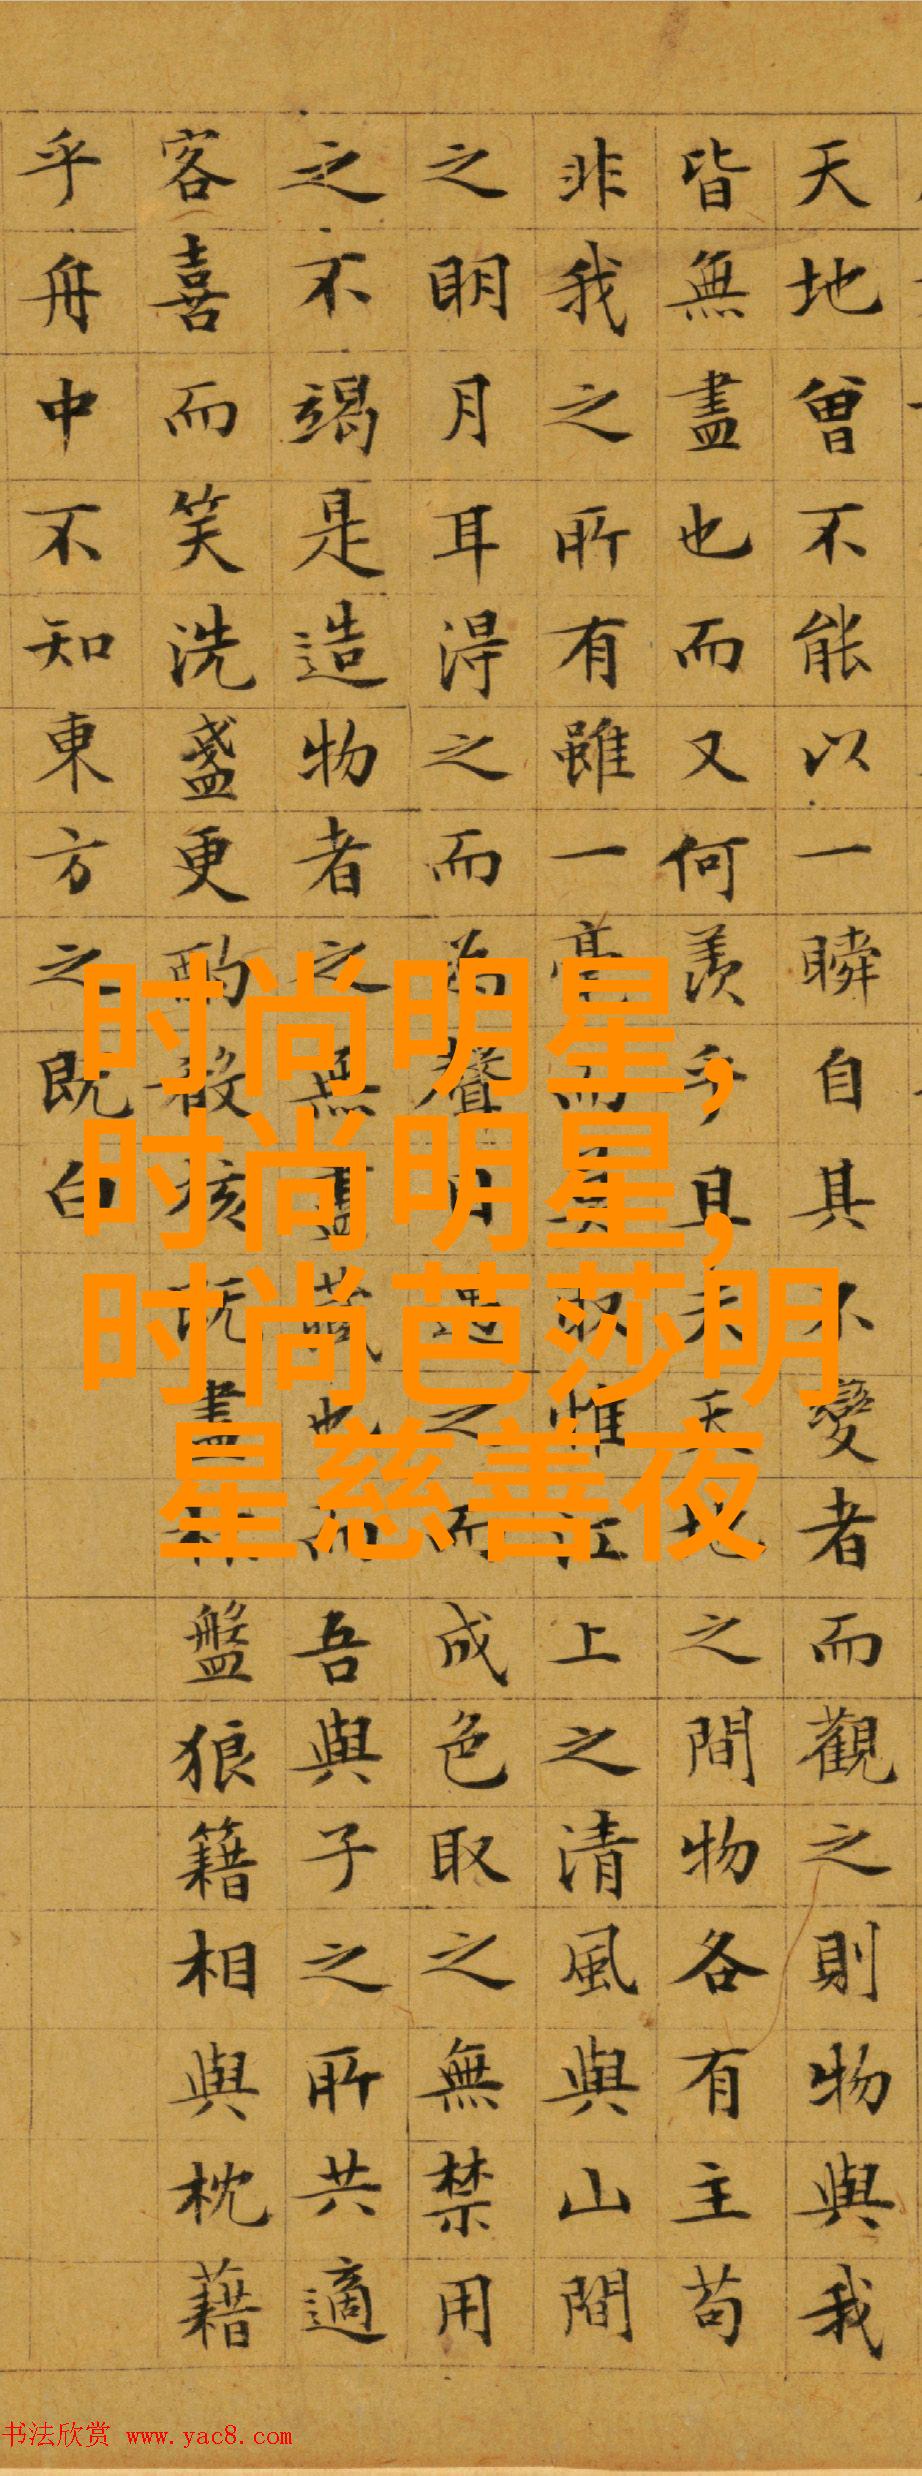 天地曾不能以一瞬自其不變者而觀之則物與我
皆無盡也而又何羨乎且夫天地之間物各有主苟
非我之所有雖一毫而莫取惟江上之清風與山間
之明月耳得之而為聲目遇之而成色取之無禁用
之不竭是造物者之無盡藏也而吾與子之所共適
客喜而笑洗盞更酌殽核既盡杯盤狼籍相與枕藉
乎舟中不知東方之既白
时尚明星,
时尚明星,
时尚芭莎明
星慈善夜
书法欣赏 www.yac8.com